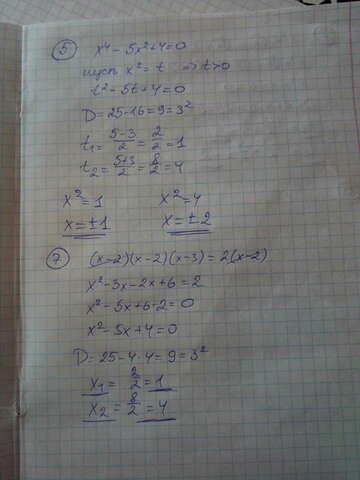 5 x⁴ - 5x² + 4 = 0
пусть x² = t => t>0
t² - 5t + 4 = 0
D = 25 - 16 = 9 = 3²
t₁ = (5-3)/2 = 2/2 = 1
t₂ = (5+3)/2 = 8/2 = 4
x² = 1 x² = 4
x = ±1 x = ±2
7 (x-2)(x-2)(x-3) = 2(x-2)
x² - 3x - 2x + 6 = 2
x² - 5x + 6 - 2 = 0
x² - 5x + 4 = 0
D = 25 - 4·4 = 9 = 3²
x₁ = 2/2 = 1
x₂ = 8/2 = 4